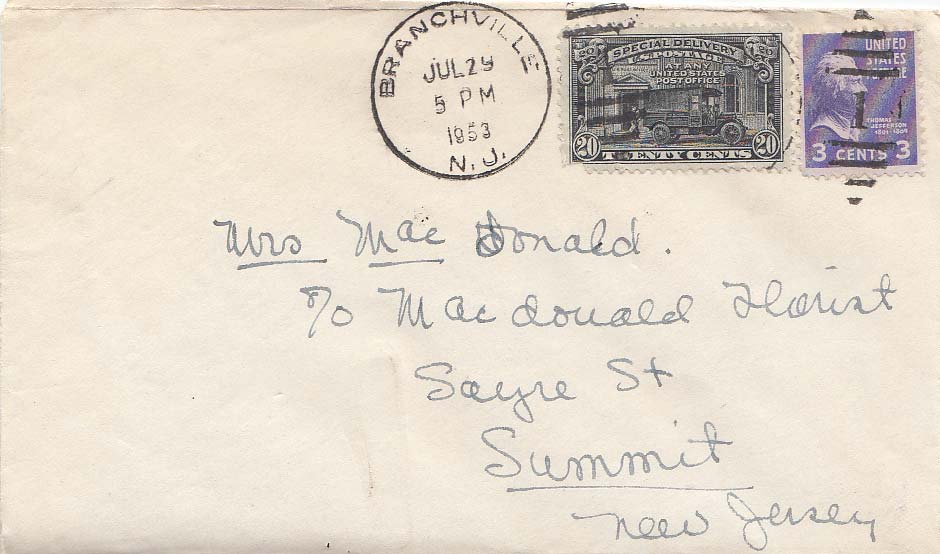 BRANCHVILLE
JUL 29
5 PM
1953
N.J.
SPECIAL DELIVERY
20 20
U.S. POSTAGE
AT ANY
UNITED STATES
POST OFFICE
20 TWENTY CENTS 20
UNITED
STATES
POSTAGE
1
THOMAS
JEFFERSON
1801-1809
3 CENTS 3
Mrs Mac Donald.
c/o Macdonald Florist
Sayre St
Summit
New Jersey